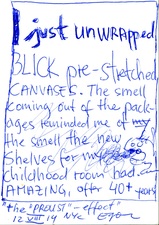 I just unwrapped
BLICK pre-stretched
CANVASES. The smell
coming out of the pack-
ages reminded me of my
the smell the new
shelves for my
childhood room had...
AMAZING, after 40+ years
"the "PROUST"-effect"
12 VIII 19 NYC